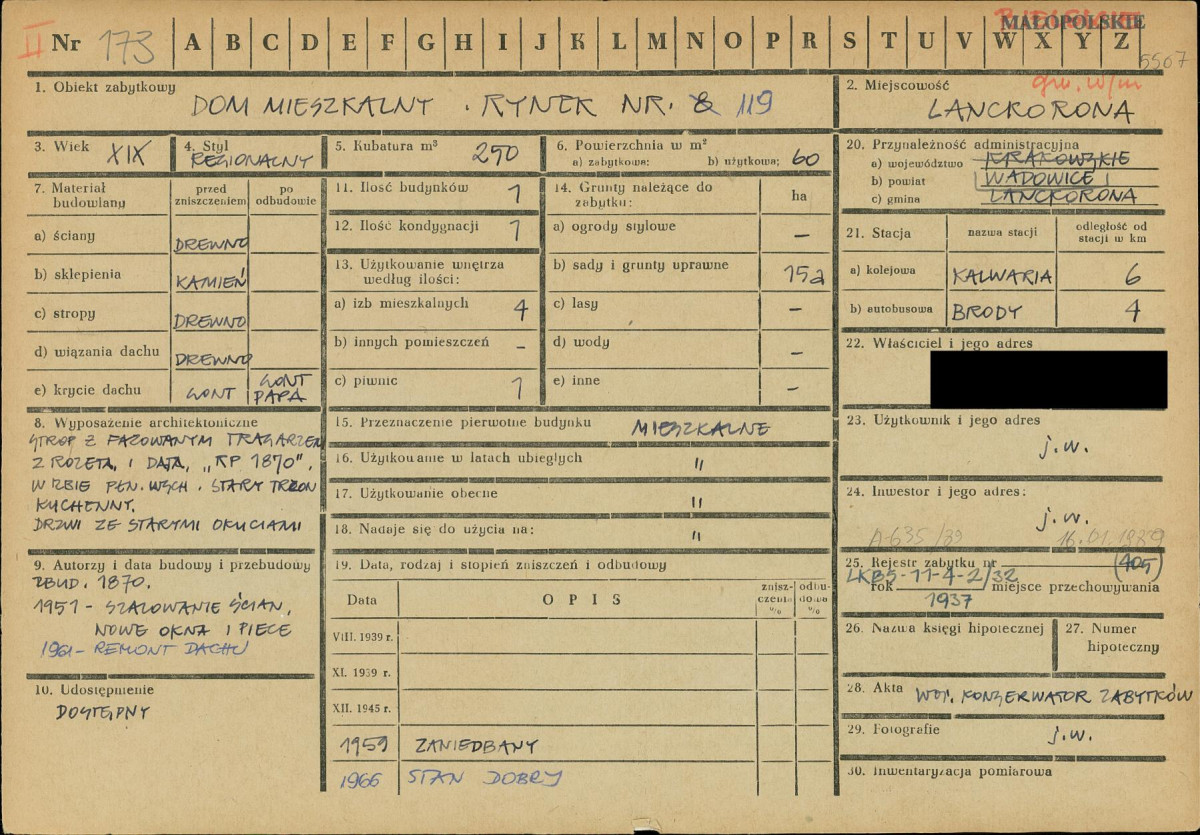 II Nr 173 A B C D E F G H I J K L M N O P R S T U V W X Y Z
MAŁOPOLSKIE
5507
1. Obiekt zabytkowy
DOM MIESZKALNY . RYNEK NR. 8 119
2. Miejscowość
gw. w/m
LANCKORONA
3. Wiek XIX
4. Styl
REGIONALNY
5. Kubatura m³ 250
6. Powierzchnia w m²
a) zabytkowa: b) użytkowa: 60
20. Przynależność administracyjna
a) województwo KRAKOWSKIE
b) powiat WADOWICE
c) gmina LANCKORONA
7. Materiał budowlany
przed zniszczeniem
po odbudowie
a) ściany DREWNO
b) sklepienia KAMIEŃ
c) stropy DREWNO
d) wiązania dachu DREWNO
e) krycie dachu GONT GONT PAPA
11. Ilość budynków 1
12. Ilość kondygnacji 1
13. Użytkowanie wnętrza
według ilości:
a) izb mieszkalnych 4
b) innych pomieszczeń -
c) piwnic 1
14. Grunty należące do
zabytku:
ha
a) ogrody stylowe -
b) sady i grunty uprawne 15a
c) lasy -
d) wody -
e) inne -
21. Stacja
nazwa stacji
odległość od
stacji w km
a) kolejowa KALWARIA 6
b) autobusowa BRODY 4
22. Właściciel i jego adres
8. Wyposażenie architektoniczne
STROP Z FAZOWANYM TRAGARZEM
Z ROZETĄ, I DATĄ, „RP 1870",
W IZBIE PŁN. WSCH. STARY TRZON
KUCHENNY.
DRZWI ZE STARYMI OKUCIAMI
15. Przeznaczenie pierwotne budynku MIESZKALNE
16. Użytkowanie w latach ubiegłych "
17. Użytkowanie obecne "
18. Nadaje się do użycia na: "
23. Użytkownik i jego adres
j.w.
24. Inwestor i jego adres:
j.w.
A-635/89 16.01.1989
9. Autorzy i data budowy i przebudowy
ZBUD. 1870.
1951 - SZALOWANIE ŚCIAN,
NOWE OKNA I PIECE
1961 - REMONT DACHU
10. Udostępnienie
DOSTĘPNY
19. Data, rodzaj i stopień zniszczeń i odbudowy
Data
OPIS
znisz-
czenia
%
odbu-
dowa
%
VIII. 1939 r.
XI. 1939 r.
XII. 1945 r.
1959 ZANIEDBANY
1966 STAN DOBRY
25. Rejestr zabytku nr (405)
LKB5-11-4-2/32
rok 1937 /miejsce przechowywania
26. Nazwa księgi hipotecznej
27. Numer
hipoteczny
28. Akta WOJ. KONSERWATOR ZABYTKÓW
29. Fotografie j.w.
30. Inwentaryzacja pomiarowa